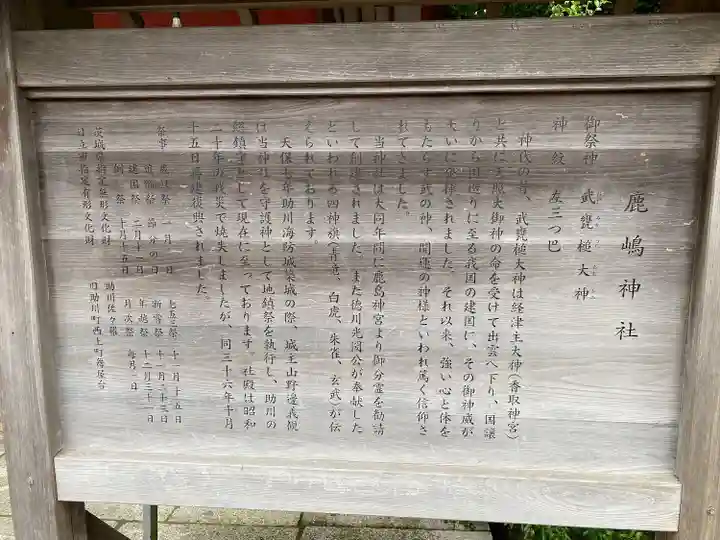 鹿嶋神社
御祭神 武甕槌大神
神紋 左三つ巴
神代の昔、武甕槌大神は経津主大神(香取神宮)
と共に天照大御神の命を受けて出雲へ下り、国譲
りから国造りに至る我国の建国に、その御神威が
大いに発揮されました。それ以来、強い心と体を
もたらす武の神、開運の神様といわれ篤く信仰さ
れてきました。
当神社は大同年間に鹿島神宮より御分霊を勧請
して創建されました。また徳川光圀公が奉献した
といわれる四神旗(青竜、白虎、朱雀、玄武)が伝
えられております。
天保七年助川海防城築城の際、城主山野邊義観
は当神社を守護神として地鎮祭を執行し、助川の
総鎮守として現在に至っております。社殿は昭和
二十年の戦災で焼失しましたが、同三十六年十月
十五日再建復興されました。
祭事 歳旦祭 一月一日 七五三祭 十一月十五日
節分祭 節分の日 新嘗祭 十一月二十三日
建国祭 二月十一日 年越祭 十二月三十一日
例祭 十月十五日 月次祭 毎月一日
茨城県指定無形文化財 助川佐々羅
日立市指定有形文化財 旧助川町西上町舞屋台